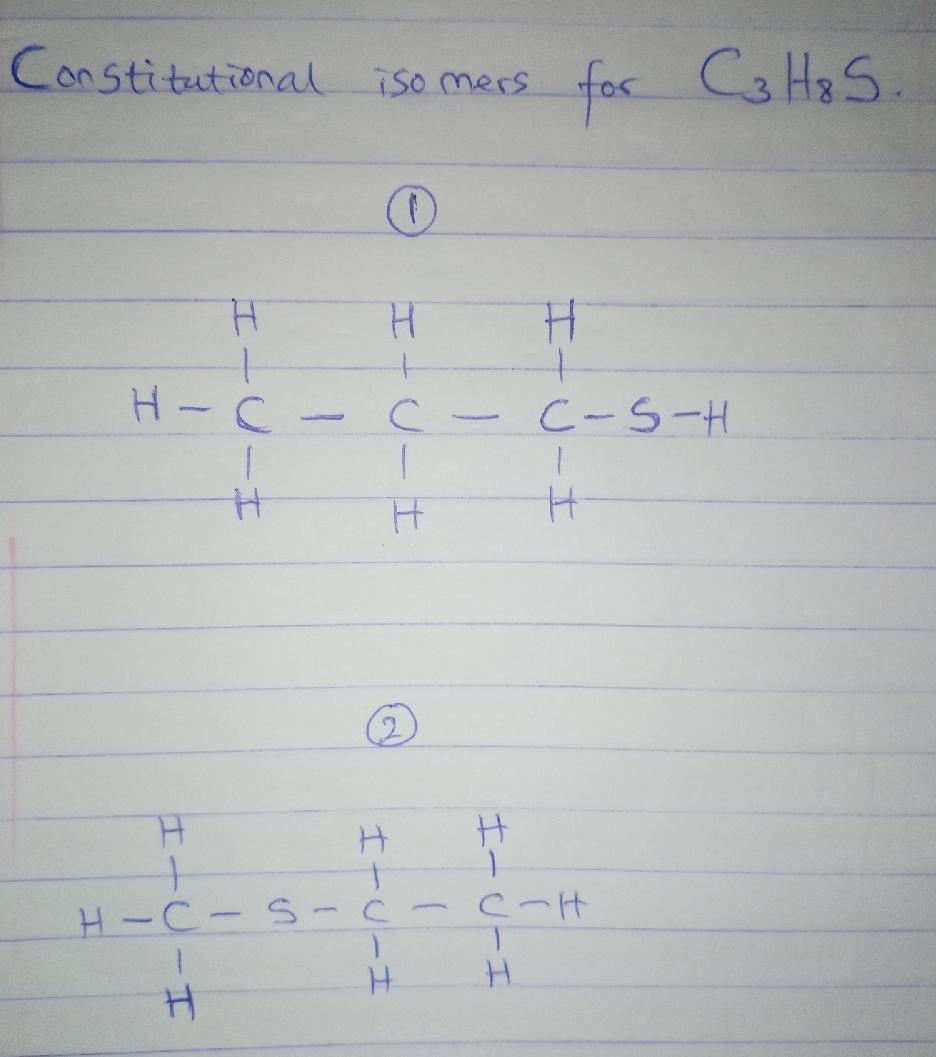 Constitutional isomers for C₃H₈S.
①
H H H
| | |
H – C – C – C – S – H
| | |
H H H
②
H H H
| | |
H – C – S – C – C – H
| | |
H H H